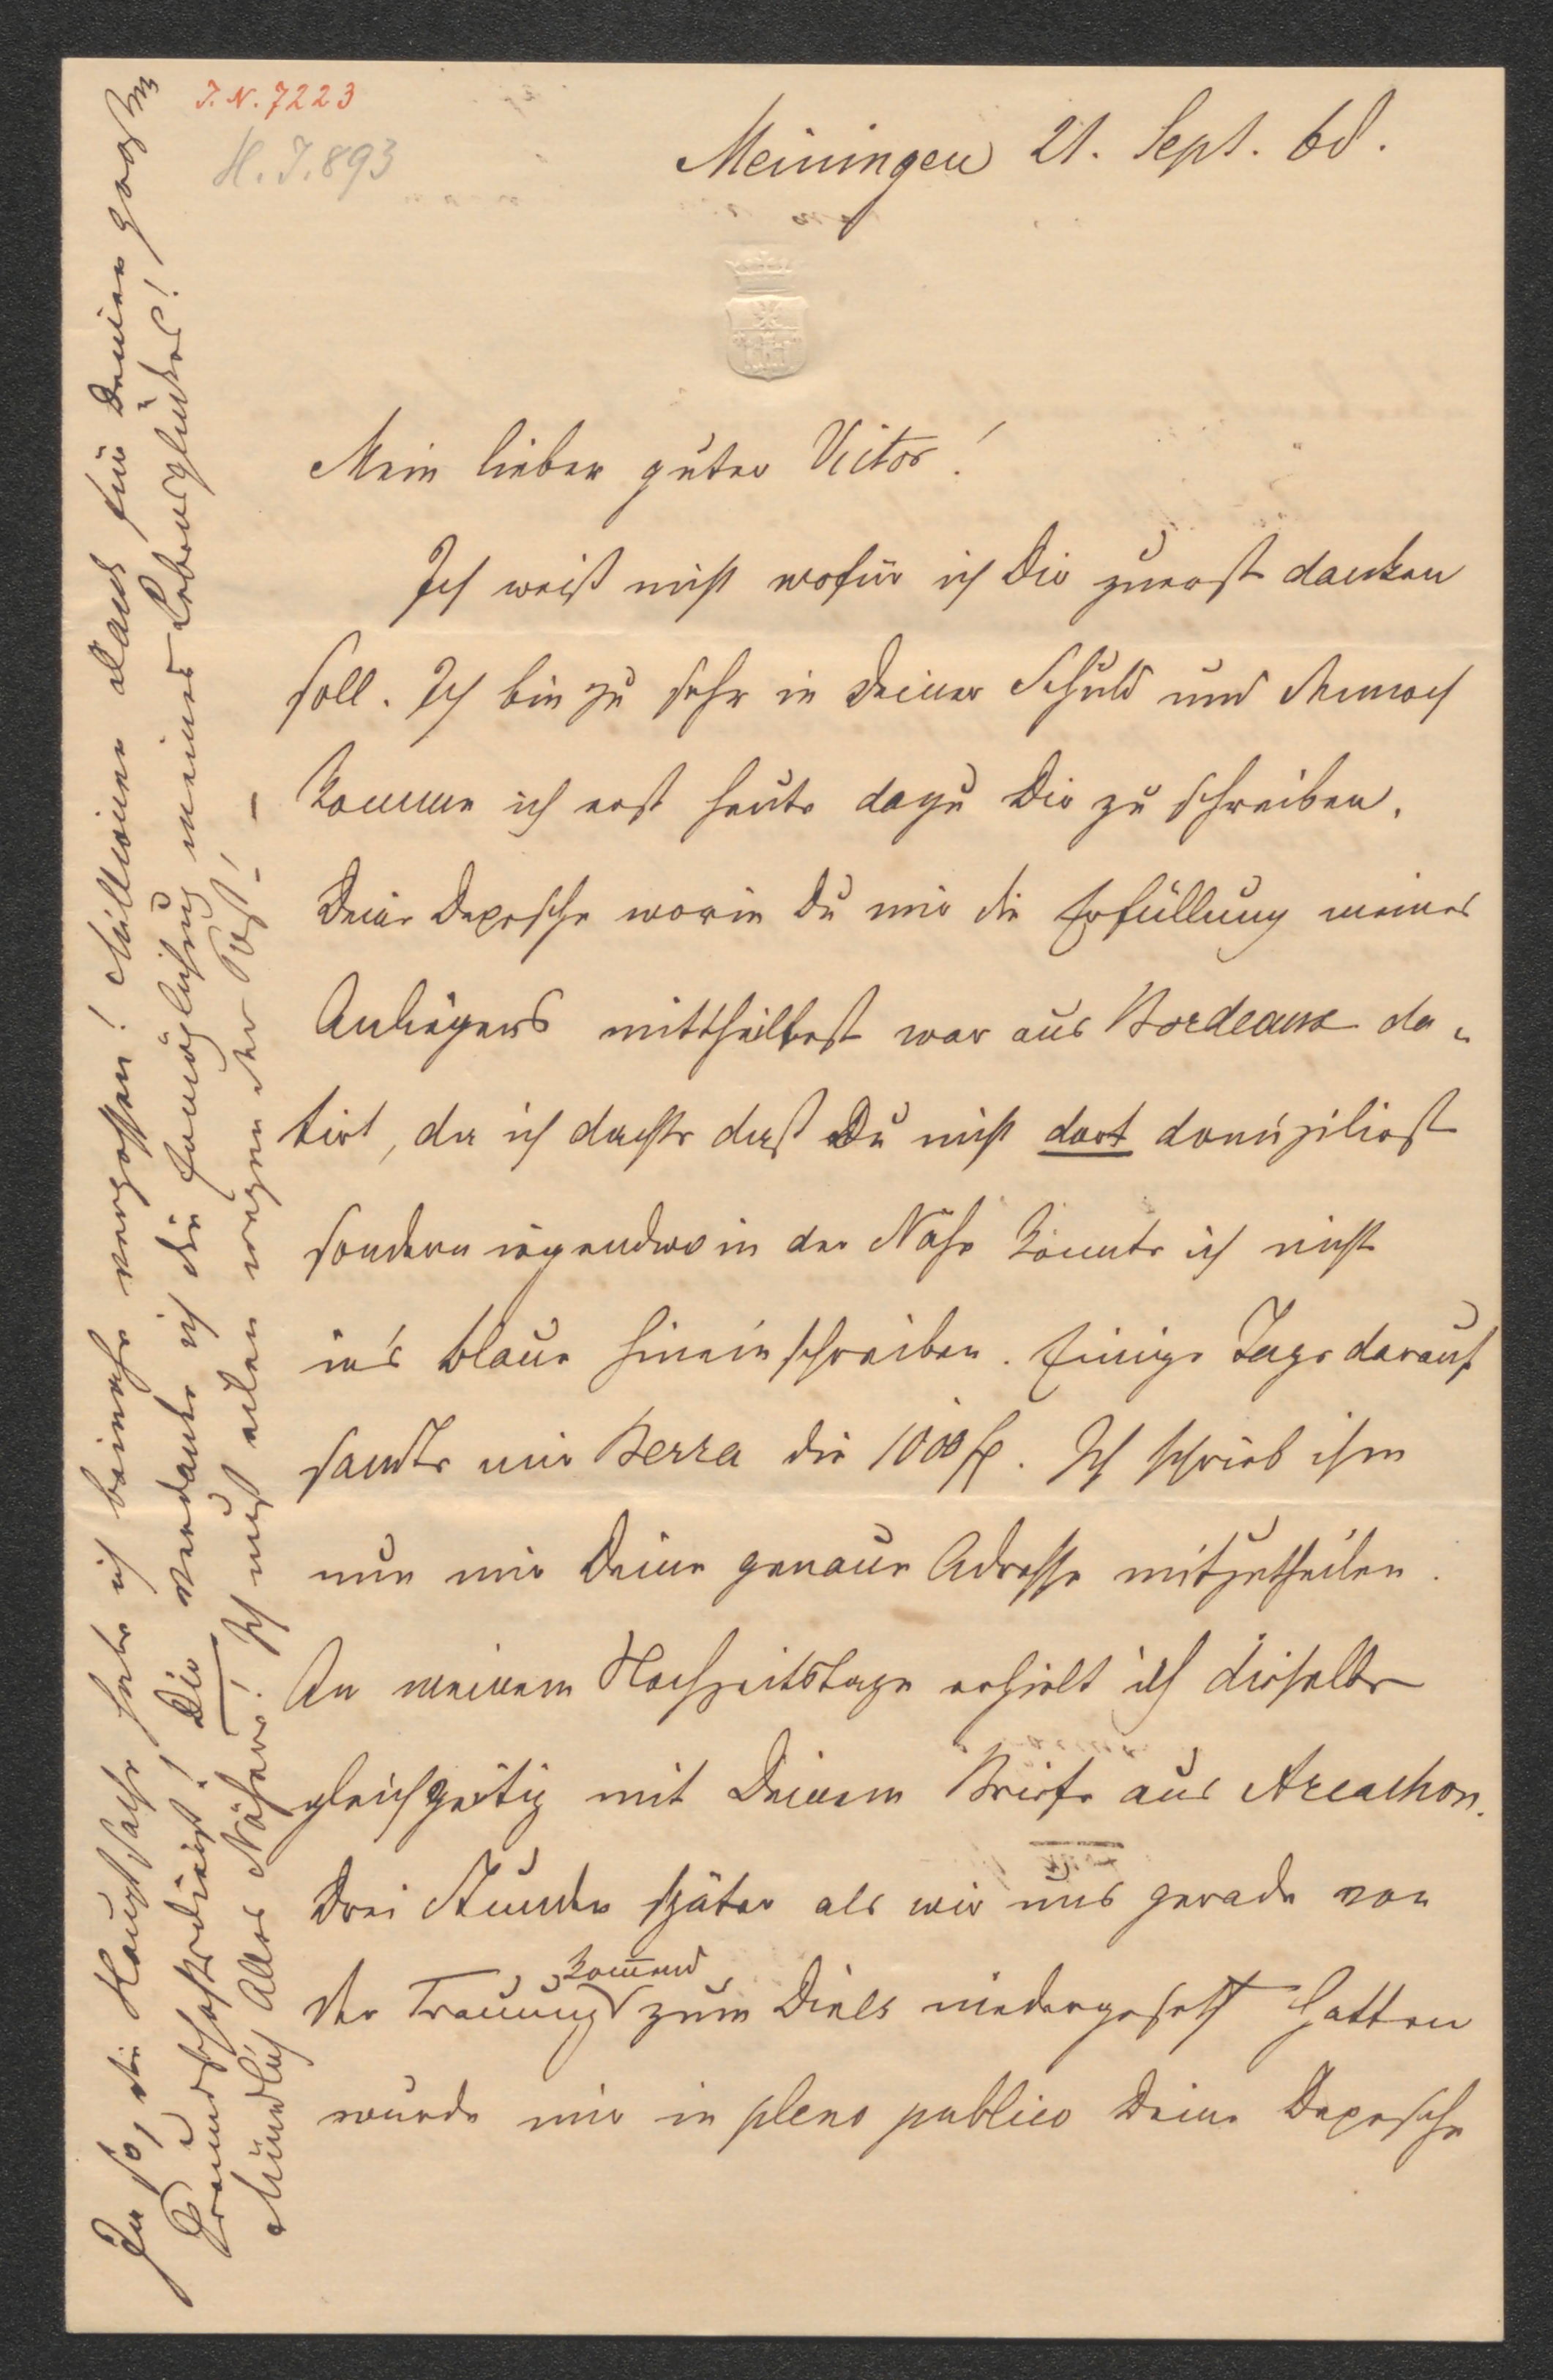 J. N. 7223
H. I. 893
Meiningen 21. Sept. 68.
Mein lieber guter Victor!
Ich weiß nicht wofür ich Dir zuerst danken
soll. Ich bin zu sehr in Deiner Schuld und dennoch
komme ich erst heute dazu Dir zu schreiben.
Deine Depesche worin Du mir die Erfüllung meines
Anliegens mittheiltest war aus Bordeaux da-
tirt, da ich dachte daß Du nicht dort domizilirst
sondern irgendwo in der Nähe konnte ich nicht
in's blaue hineinschreiben. Einige Tage darauf
sandte mir Berra die 1000 f. Ich schrieb ihm
nun mir Deine genaue Adresse mitzutheilen.
An meinem Hochzeitstage erhielt ich dieselbe
gleichzeitig mit Deinem Briefe aus Arcachon.
Drei Stunden später als wir uns gerade von
der Trauung kommend zum Diner niedergesetzt hatten
wurde mir in pleno publico Deine Depesche
Ja so, die Hauptsache habe ich beinahe vergessen! Millionen Dank für Deinen großen
Freundschaftsdienst! Dir verdanke ich die Ermöglichung meines Lebensglückes!
Mündlich Alles Nähere! Ich muß eilen wegen der Post! –